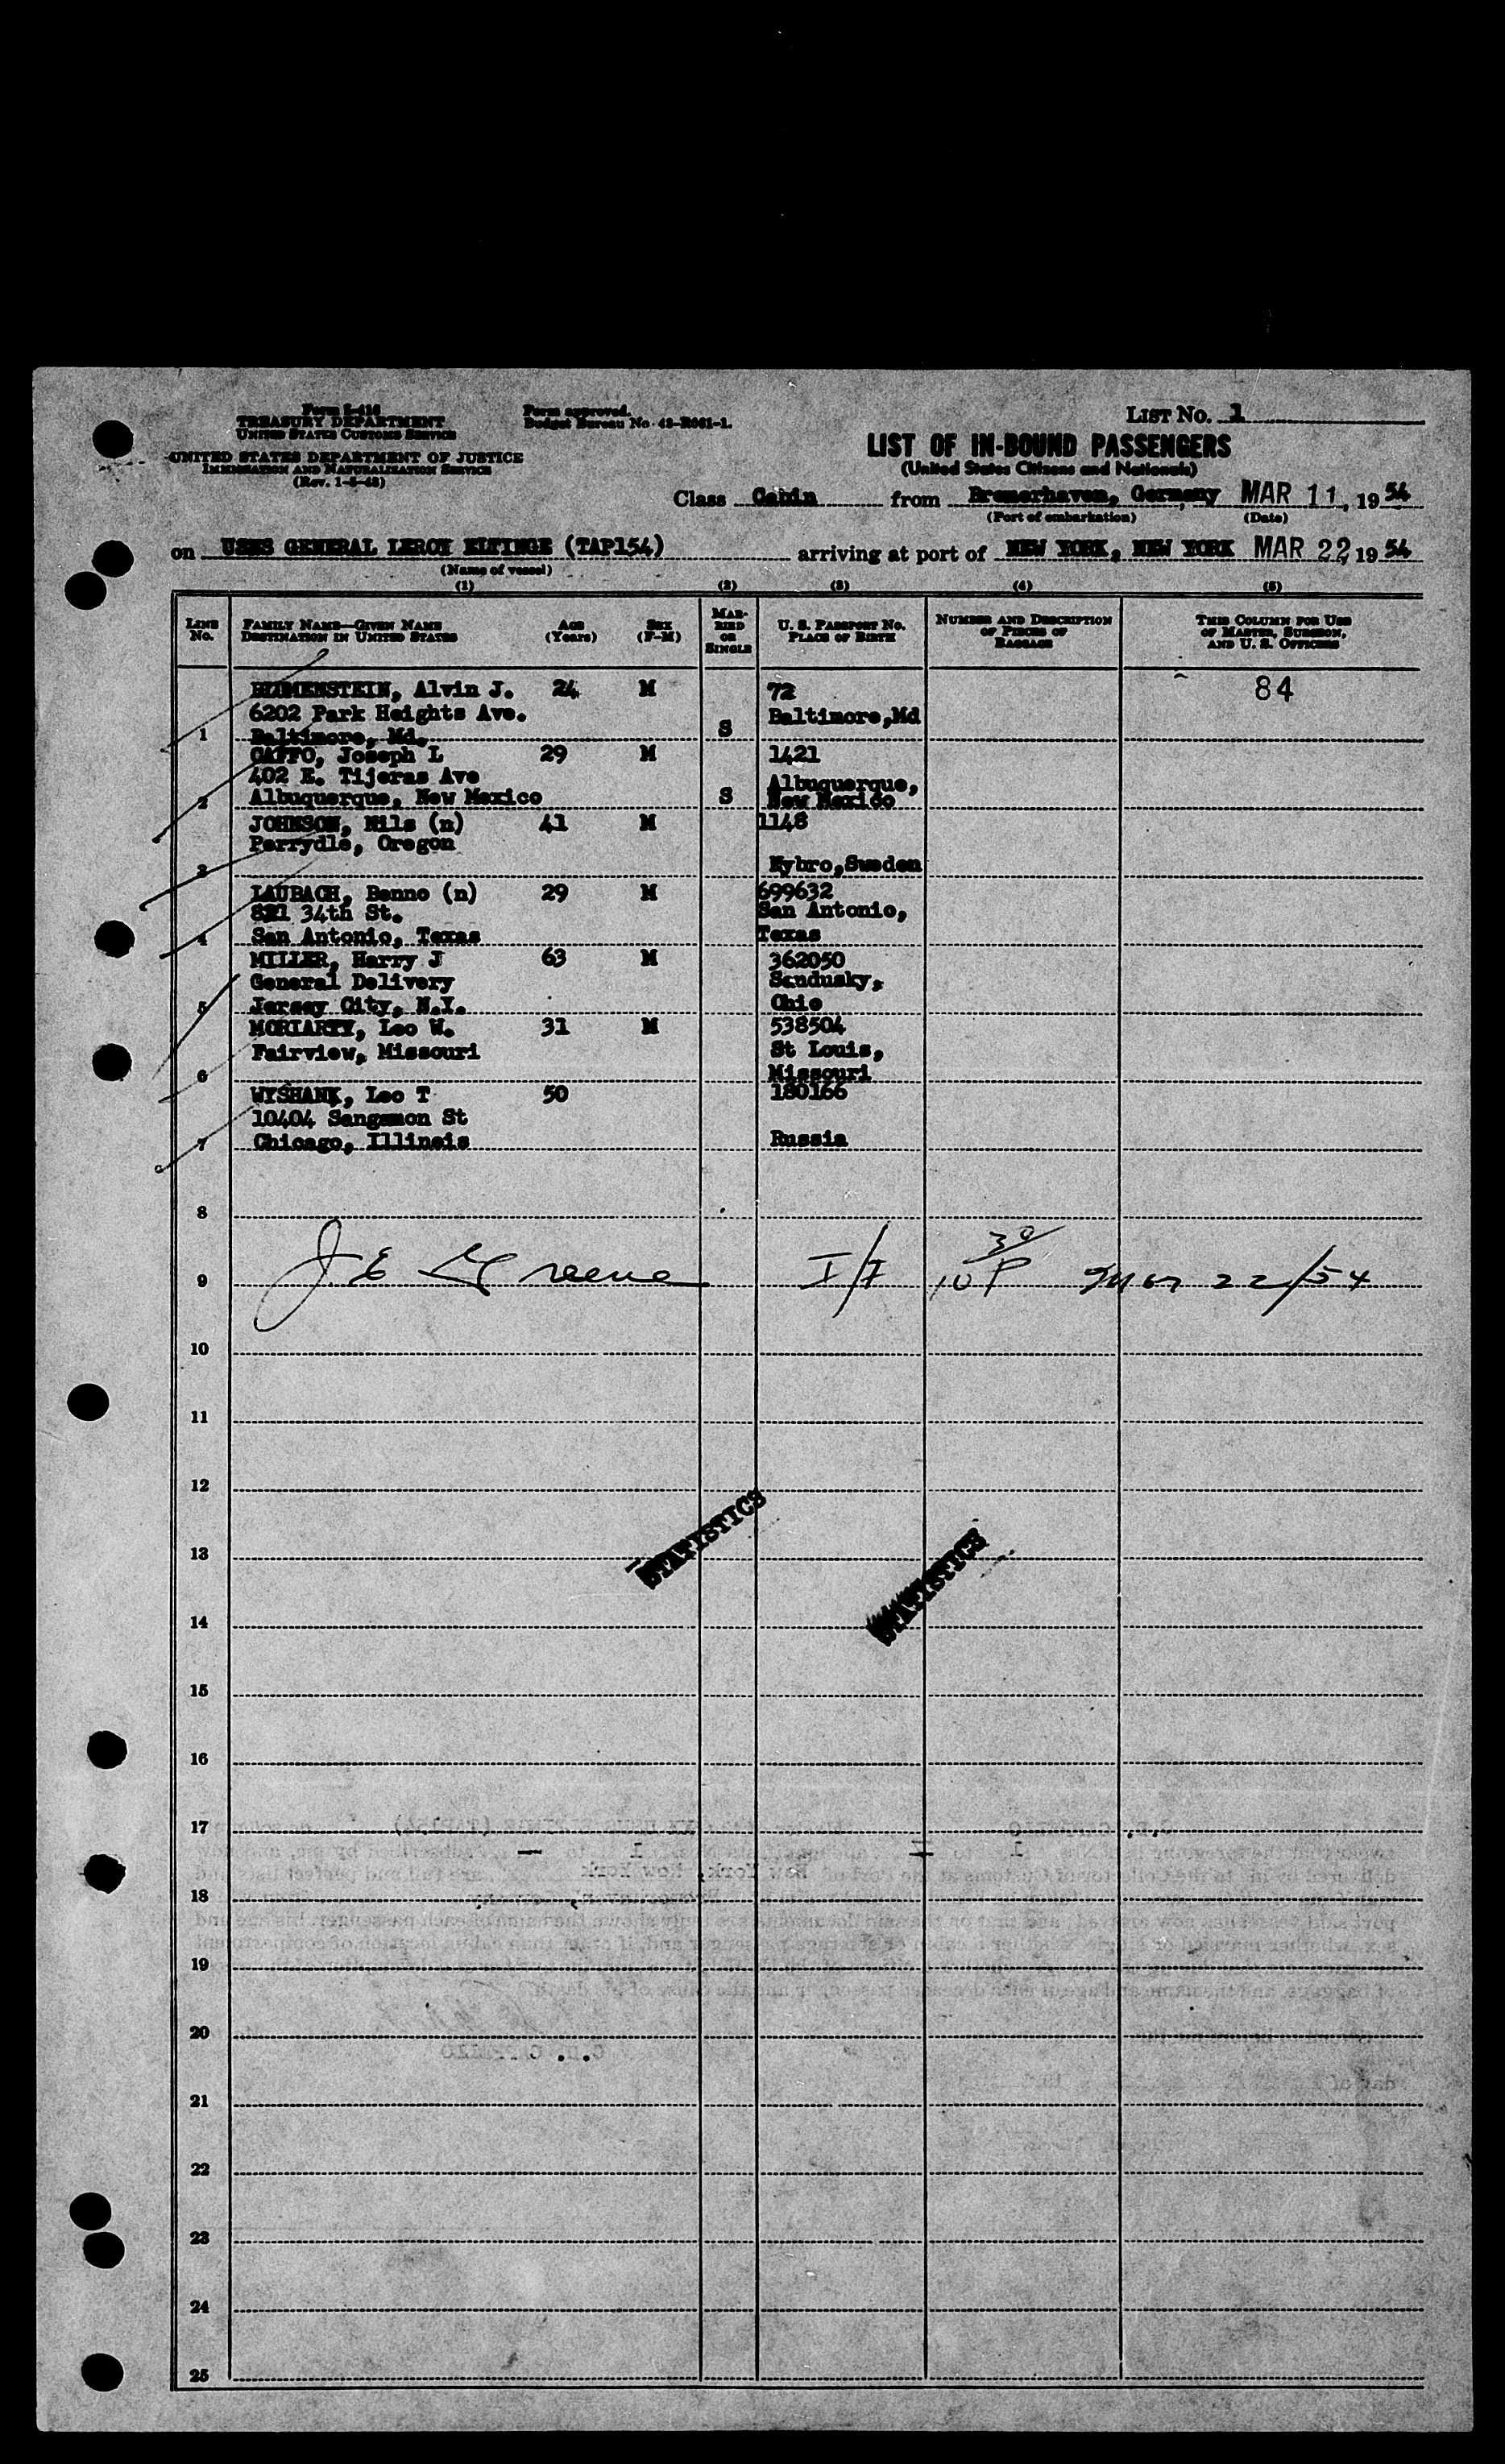 Form I-416
TREASURY DEPARTMENT
UNITED STATES CUSTOMS SERVICE
UNITED STATES DEPARTMENT OF JUSTICE
IMMIGRATION AND NATURALIZATION SERVICE
(Rev. 1-5-48)
Form approved.
Budget Bureau No. 43-R061-1.
LIST NO. 1
LIST OF IN-BOUND PASSENGERS
(United States Citizens and Nationals)
Class Cabin from Bremerhaven, Germany MAR 11, 1954
(Port of embarkation) (Date)
on USNS GENERAL LEROY ELTINGE (TAP154) arriving at port of NEW YORK, NEW YORK MAR 22, 1954
(Name of vessel)
(1) (2) (3) (4) (5)
LINE NO.
FAMILY NAME—GIVEN NAME
DESTINATION IN UNITED STATES
AGE (Years)
SEX (F-M)
MARRIED OR SINGLE
U. S. PASSPORT NO.
PLACE OF BIRTH
NUMBER AND DESCRIPTION OF PIECES OF BAGGAGE
THIS COLUMN FOR USE OF MASTER, SURGEON, AND U. S. OFFICERS
BLUMENSTEIN, Alvin J. 24 M 72 84
6202 Park Heights Ave. Baltimore, Md
1 Baltimore, Md. S
GAFFO, Joseph L 29 M 1421
402 E. Tijeras Ave Albuquerque,
2 Albuquerque, New Mexico S New Mexico
JOHNSON, Nils (n) 41 M 1148
Perrydle, Oregon
3 Nybro, Sweden
LAUBACH, Benno (n) 29 M 699632
34th St. San Antonio,
4 San Antonio, Texas Texas
MILLER, Harry J 63 M 362050
General Delivery Sandusky,
5 Jersey City, N.Y. Ohio
MORIARTY, Leo W. 31 M 538504
Fairview, Missouri St Louis,
6 Missouri
WYSHANK, Leo T 50 180166
10404 Sangamon St
7 Chicago, Illinois Russia
8
9 J E Greene I/I 10 30 P Mar 22/54
10
11
12
STATISTICS
13
STATISTICS
14
15
16
17
18
19
20
21
22
23
24
25